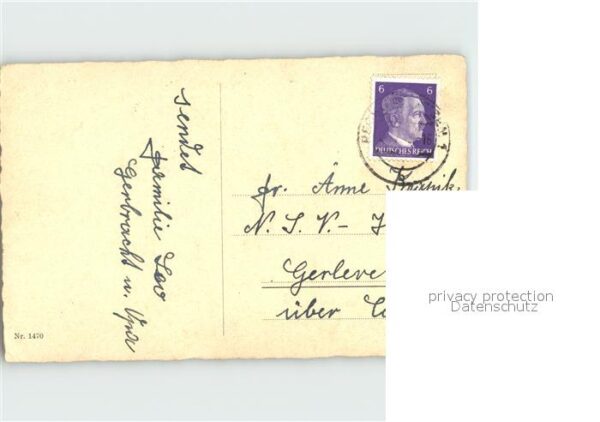 sendet
Familie Leo
Gerbracht u.
Nr. 1470
6 6
DEUTSCHES REICH
Fr. Änne
N. S. V. -
Gerleve
über
privacy protection
Datenschutz